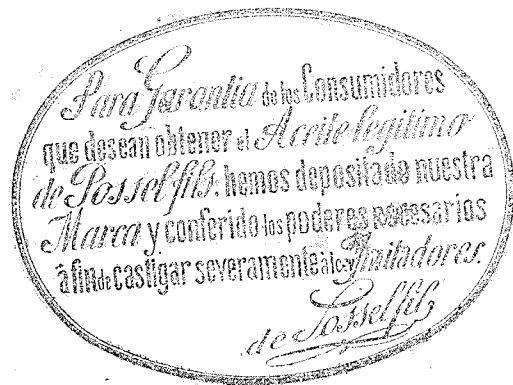 Para Garantia de los Consumidores
que desean obtener el Aceite legitimo
de Possel fils. hemos depositado nuestra
Marca y conferido los poderes necesarios
à fin de castigar severamente à los Imitadores.
de Possel fils